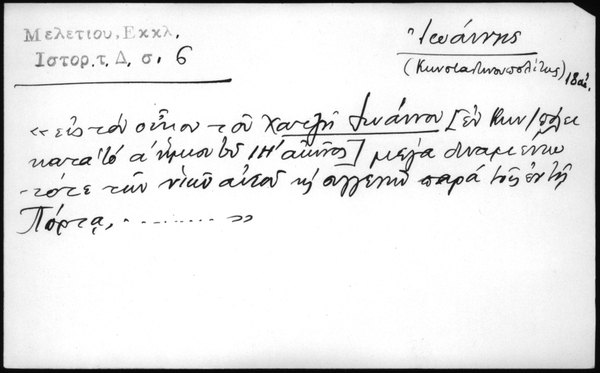 Μελετίου, Εκκλ.
Ιστορ. τ. Δ, σ. 6
Ἰωάννης
(Κωνσταντινουπολίτης) 18 αἰ.
«εἰς τὸν οἶκον τοῦ Χατζῆ Ἰωάννου [ἐν Κων/πόλει
κατὰ τὸ α' ἥμισυ τοῦ ΙΗ' αἰῶνος] μεγα δυναμένου
τότε τῶν αὐτοῦ κὴ συγγενῶν παρὰ τοῖς ἐν τῇ
Πόρτᾳ, .......... »